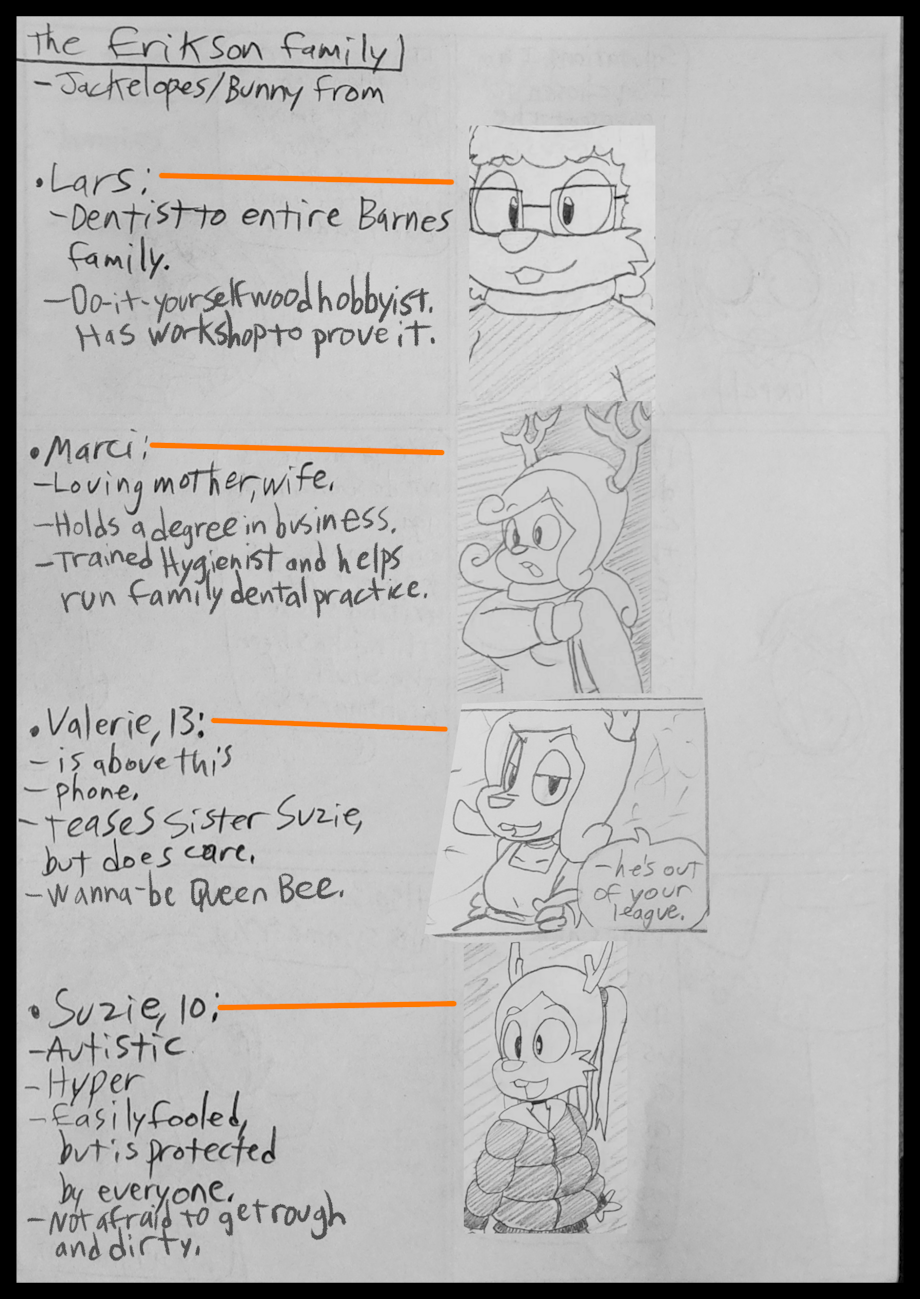 The Erikson family
-Jackelopes/Bunny from
•Lars:
-Dentist to entire Barnes
family.
-Do-it-yourself wood hobbyist.
Has workshop to prove it.
•Marci:
-Loving mother, wife.
-Holds a degree in business.
-Trained Hygienist and helps
run family dental practice.
•Valerie, 13:
-is above this
-phone.
-teases sister Suzie,
but does care.
-Wanna-be Queen Bee.
-he's out
of your
league.
•Suzie, 10:
-Autistic
-Hyper
-Easily fooled,
but is protected
by everyone.
-Not afraid to get rough
and dirty.